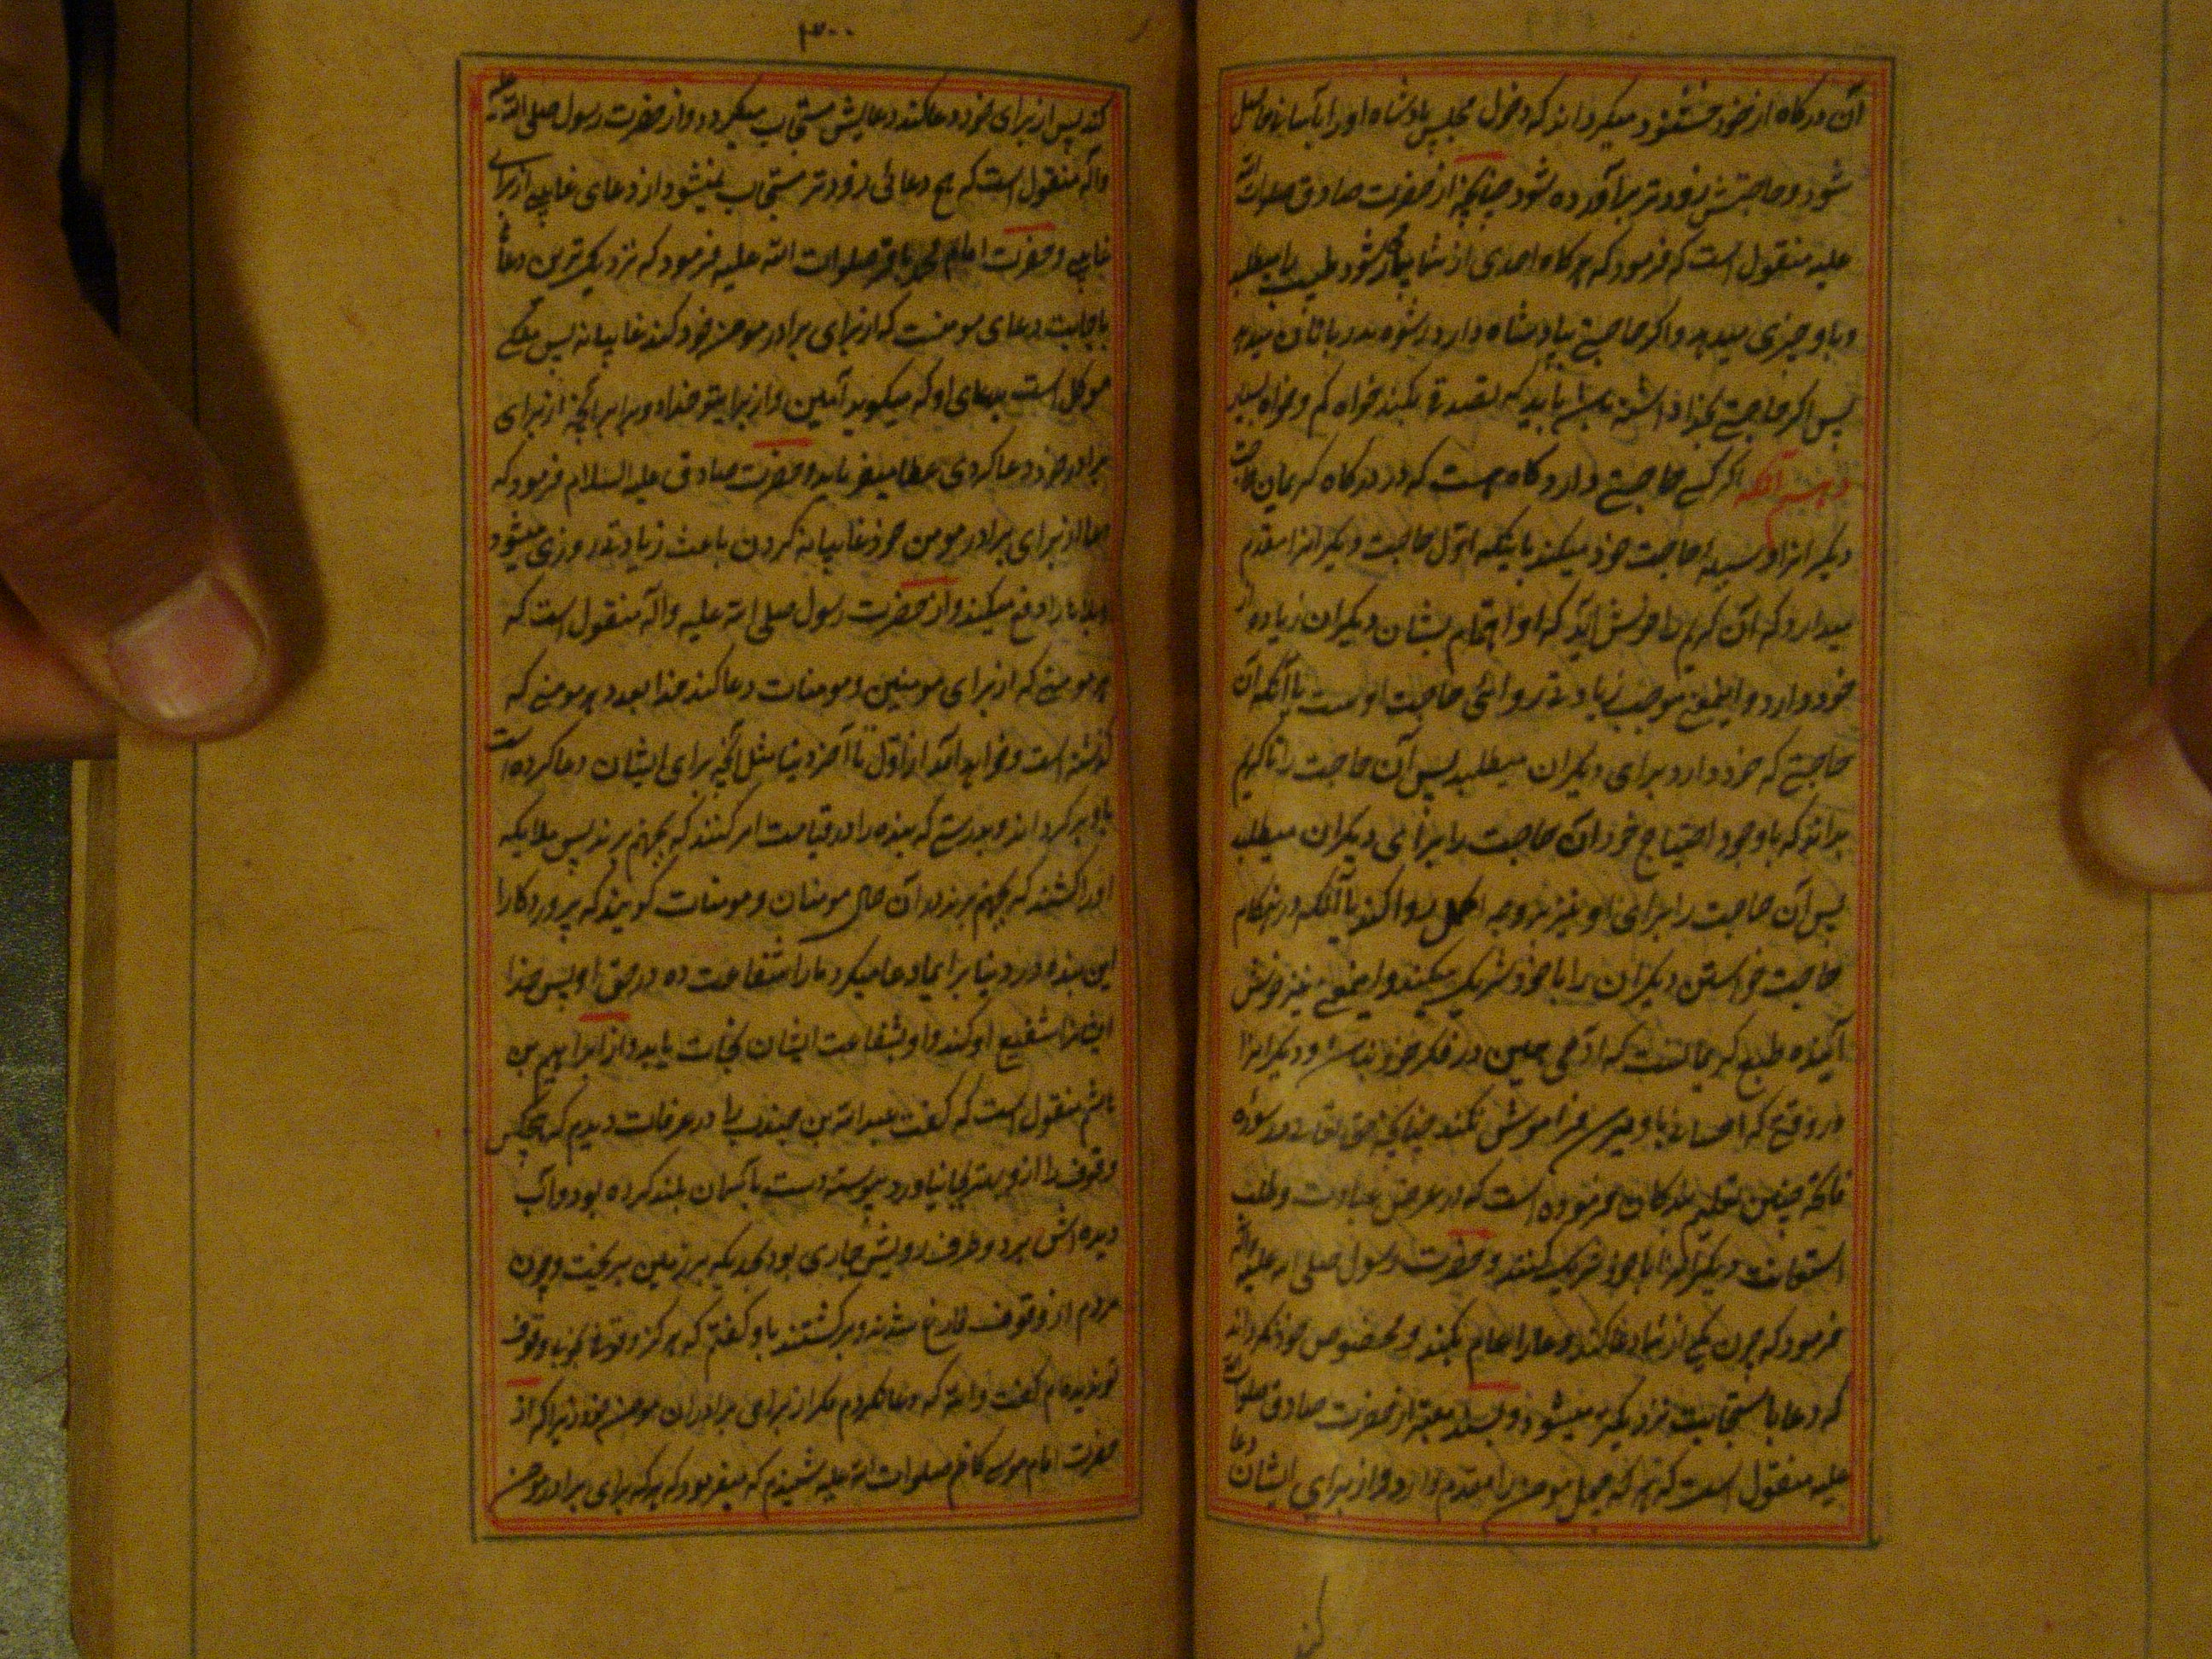 آن درکاه از خود خشنود میکرداند که دخول مجلس پادشاه او را بآسانی حاصل
شود و حاجتش زودتر برآورده شود چنانچه از حضرت صادق صلوات الله
علیه منقول است که فرمود که هرکاه احدی از شما بیمار شود طبیب را میطلبد
و باو چیزی میدهد و اکر حاجتی بپادشاه دارد رشوه بدربانان میدهد
پس اکر حاجتی بخدا داشته باشد باید که تصدق بکند خواه کم و خواه بسیار
دهیم آنکه اکر کسی حاجتی دارد و کاه هست که در درکاه کریمان حاجت
دیکرانرا وسیله حاجت خود میکند باینکه اول حاجت دیکرانرا مقدم
میدارد که آن کریم را خوش آید که او اهتمام بشان دیکران زیاده از
خود دارد و اینمعنی موجب زیادتی روائی حاجت اوست یا آنکه آن
حاجتی که خود دارد برای دیکران میطلبد پس آن حاجت را تا کریم
بداند که با وجود احتیاج خود آن حاجت را برای دیکران میطلبد
پس آن حاجت را برای او نیز بر وجه اکمل روا کند یا آنکه در هنکام
حاجت خواستن دیکران را با خود شریک میکند و اینمعنی نیز خوش
آینده طبع کریمانست که آدمی همین در فکر خود نباشد و دیکرانرا
در وقتی که احسان باو میرسد فراموش نکند چنانچه حق تعالی در سوره
فاتحه چنین تعلیم بندکان فرموده است که در عرض عبادت و طلب
استعانت دیکرانرا با خود شریک کنند و حضرت رسول صلی الله علیه وآله
فرمود که چون یکی از شما دعا کند دعا را عام بکند و مخصوص خود نکرداند
که دعا باستجابت نزدیکتر میشود و بسند معتبر از حضرت صادق صلوات الله
علیه منقول است که هر که چهل مومن را مقدم دارد و از برای ایشان دعا
کند
۳۰۰
کند پس از برای خود دعا کند دعایش مستجاب میکردد و از حضرت رسول صلی الله علیه
وآله منقول است که هیچ دعائی زودتر مستجاب نمیشود از دعای غایبی از برای
غایبی و حضرت امام محمد باقر صلوات الله علیه فرمود که نزدیکترین دعاها
باجابت دعای مومنست که از برای برادر مومن خود کند غایبانه پس ملکی
موکل است بدعای او که میکوید آمین و از برای تو خدا دو برابر آنچه از برای
برادر خود دعا کردی عطا میفرماید و حضرت صادق علیه السلام فرمود که
دعا از برای برادر مومن خود غایبانه کردن باعث زیادتی روزی میشود
و بلاها را دفع میکند و از حضرت رسول صلی الله علیه وآله منقول است که
هر مومنی که از برای مومنین و مومنات دعا کند خدا بعدد هر مومنی که
کذشته است و خواهد آمد از اول تا آخر دنیا مثل آنچه برای ایشان دعا کرده است
باو برکرداند و بدرستی که بنده را در قیامت امر کنند که بجهنم برند پس ملایکه
او را کشند که بجهنم برند در آن حال مومنان و مومنات کویند که پروردکارا
این بنده در دنیا برای ما دعا میکرد ما را شفاعت ده در حق او پس خدا
ایشانرا شفیع او کند و او بشفاعت ایشان نجات یابد و از ابراهیم بن
هاشم منقول است که کفت عبدالله بن جندب را در عرفات دیدم که هیچکس
وقوف را از او بهتر بجا نیاورد پیوسته دست بآسمان بلند کرده بود و آب
دیده اش بر دو طرف رویش جاری بود بحدیکه بر زمین میریخت و چون
مردم از وقوف فارغ شدند و برکشتند باو کفتم که هرکز وقوفی بخوبی وقوف
تو ندیده ام کفت والله که دعا نکردم مکر از برای برادران مومن خود زیرا که از
حضرت امام موسی کاظم صلوات الله علیه شنیدم که میفرمود که هرکه برای برادر مومن